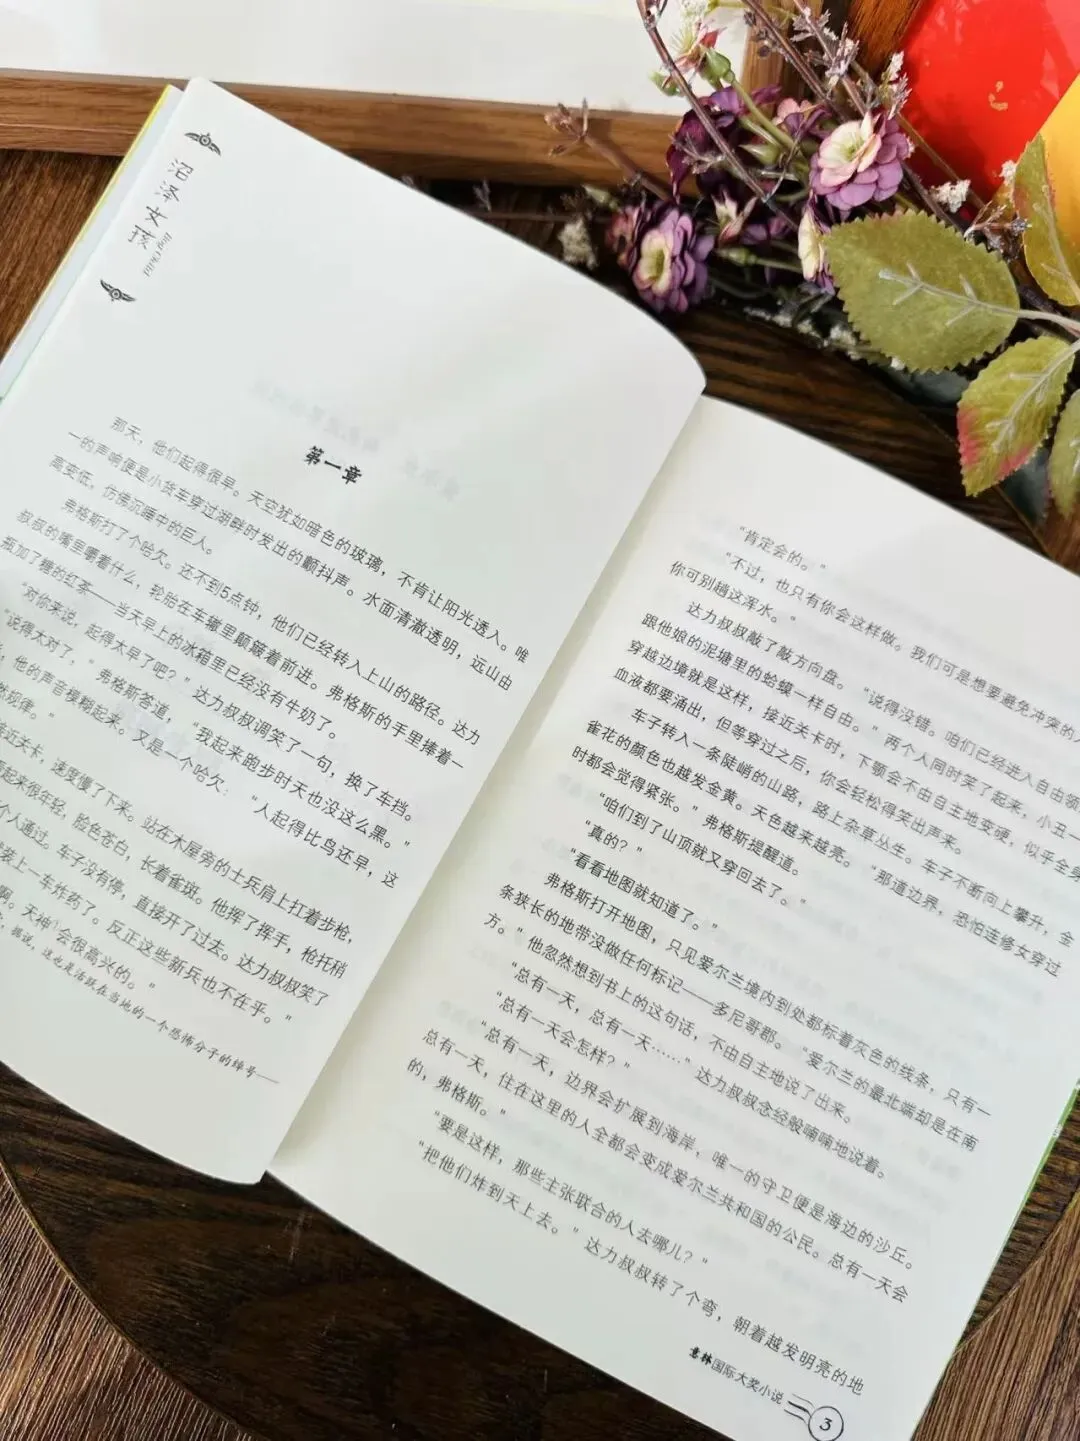 沼泽女孩
Bog Child
第一章
那天，他们起得很早。天空犹如暗色的玻璃，不肯让阳光透入。唯
一的声响便是小货车穿过湖畔时发出的颤抖声。水面清澈透明，远山由
高变低，仿佛沉睡中的巨人。
弗格斯打了个哈欠。还不到5点钟，他们已经转入上山的路径。达力
叔叔的嘴里嚼着什么，轮胎在车辙里颠簸着前进。弗格斯的手里捧着一
瓶加了糖的红茶——当天早上的冰箱里已经没有牛奶了。
“对你来说，起得太早了吧？”达力叔叔调笑了一句，换了车挡。
“说得太对了，”弗格斯答道，“我起来跑步时天也没这么黑。”
，他的声音模糊起来。又是一个哈欠：“人起得比鸟还早，这
然规律。”
接近关卡，速度慢了下来。站在木屋旁的士兵肩上扛着步枪，
起来很年轻，脸色苍白，长着雀斑。他挥了挥手，枪托稍
个人通过。车子没有停，直接开了过去。达力叔叔笑了
装上一车炸药了。反正这些新兵也不在乎。”
啊。天神¹会很高兴的。”
，据说，这也是活跃在当地的一个恐怖分子的绰号——
“肯定会的。”
“不过，也只有你会这样做。我们可是想要避免冲突的
你可别趟这浑水。”
达力叔叔敲了敲方向盘。“说得没错。咱们已经进入自由领
跟他娘的泥塘里的蛤蟆一样自由。”两个人同时笑了起来，小丑一
穿越边境就是这样，接近关卡时，下颚会不由自主地变硬，似乎全身
血液都要涌出，但等穿过之后，你会轻松得笑出声来。
车子转入一条陡峭的山路，路上杂草丛生。车子不断向上攀升，金
雀花的颜色也越发金黄。天色越来越亮。“那道边界，恐怕连修女穿过
时都会觉得紧张。”弗格斯提醒道。
“咱们到了山顶就又穿回去了。”
“真的？”
“看看地图就知道了。”
弗格斯打开地图，只见爱尔兰境内到处都标着灰色的线条，只有一
条狭长的地带没做任何标记——多尼哥郡。“爱尔兰的最北端却是在南
方。”他忽然想到书上的这句话，不由自主地说了出来。
“总有一天，总有一天……”达力叔叔念经般喃喃地说着。
“总有一天会怎样？”
“总有一天，边界会扩展到海岸，唯一的守卫便是海边的沙丘。
总有一天，住在这里的人全都会变成爱尔兰共和国的公民。总有一天会
的，弗格斯。”
“要是这样，那些主张联合的人去哪儿？”
“把他们炸到天上去。”达力叔叔转了个弯，朝着越发明亮的地
意林国际大奖小说
3